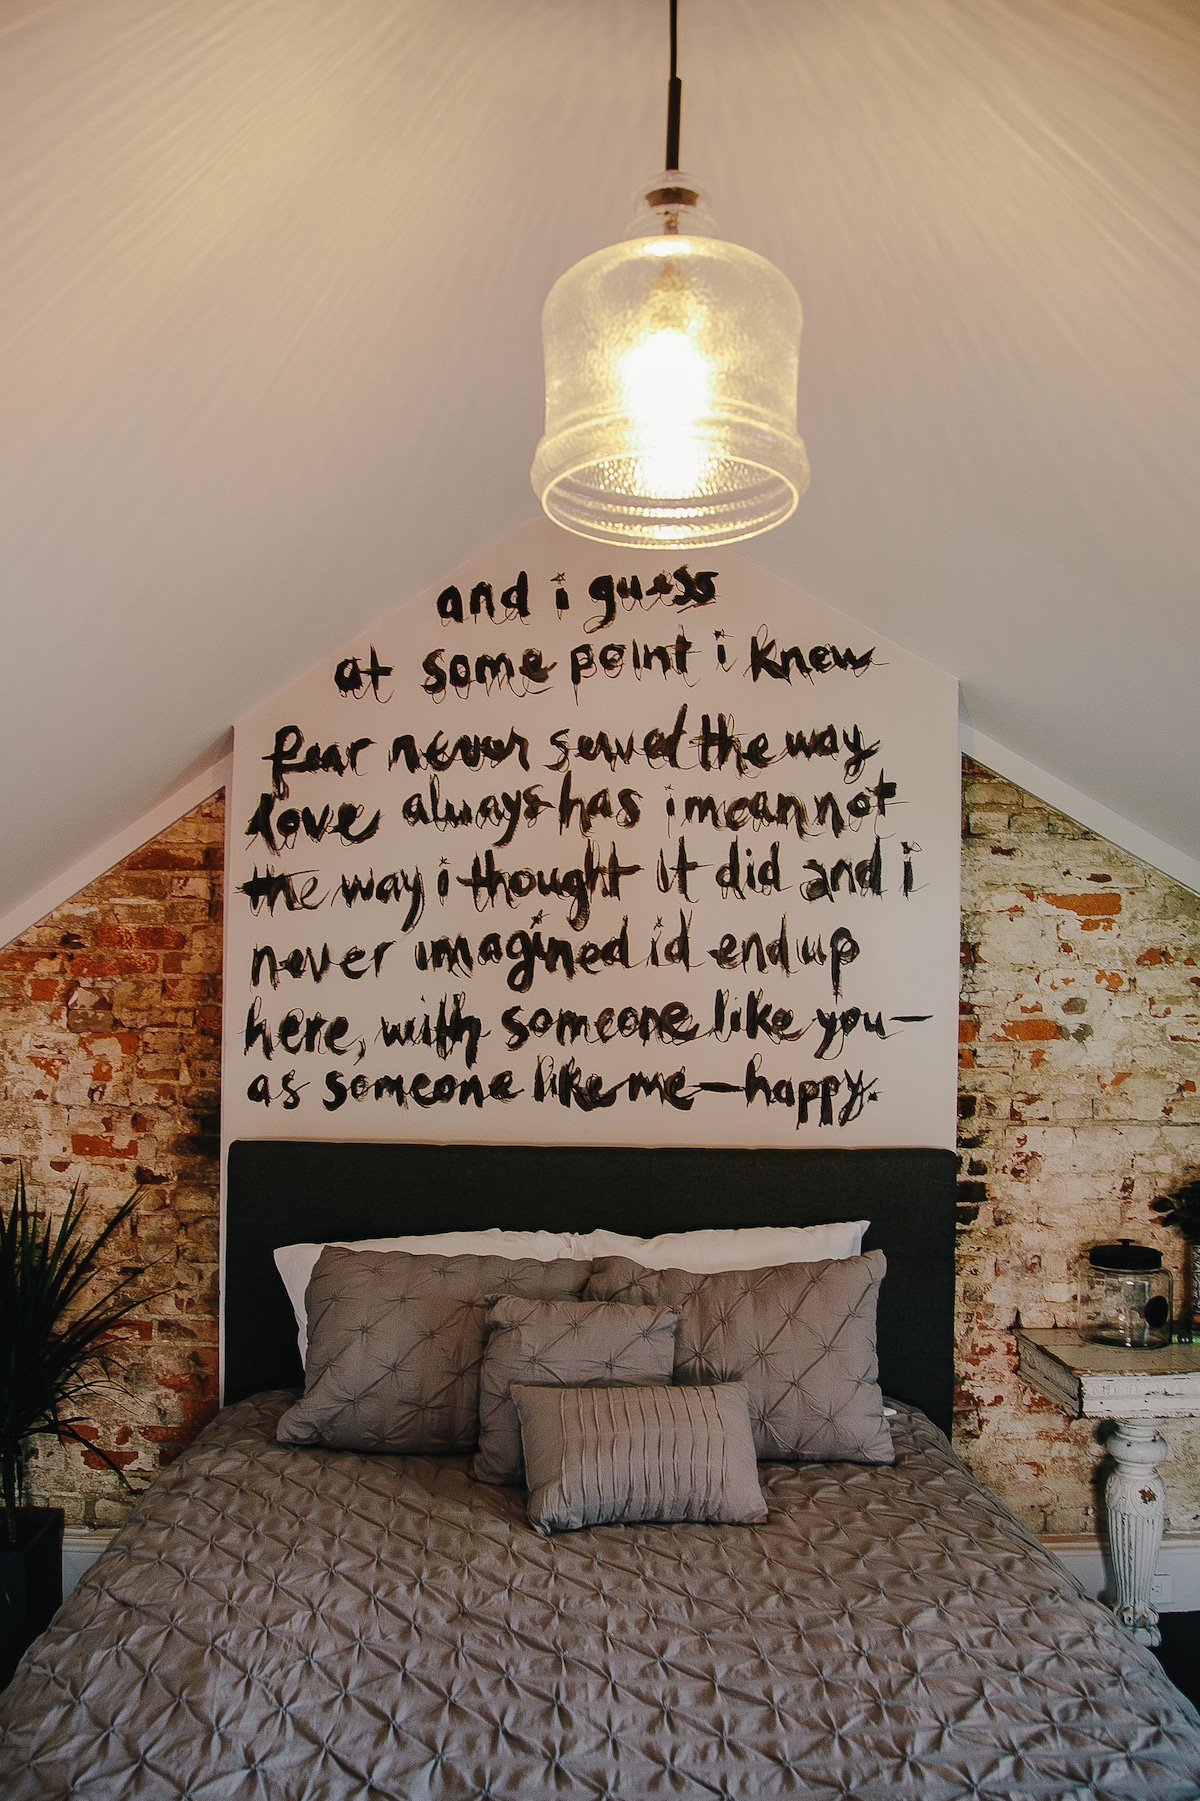 and i guess
at some point i knew
fear never served the way
love always has i mean not
the way i thought it did and i
never imagined id end up
here, with someone like you—
as someone like me—happy.